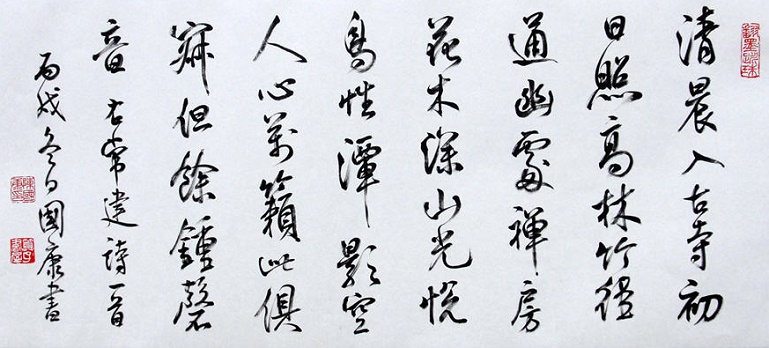 清晨入古寺初
日照高林竹徑
通幽處禪房
花木深山光悅
鳥性潭影空
人心萬籟此俱
寂但餘鍾磬
音右常建詩一首
丙戌冬日國康書